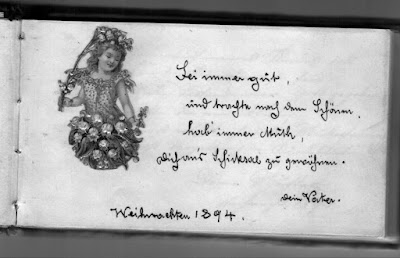 Sei immer gut,
und trachte nach dem Schönen,
hab' immer Muth,
Dich an's Schicksal zu gewöhnen.
Dein Vater.
Weihnachten 1894.